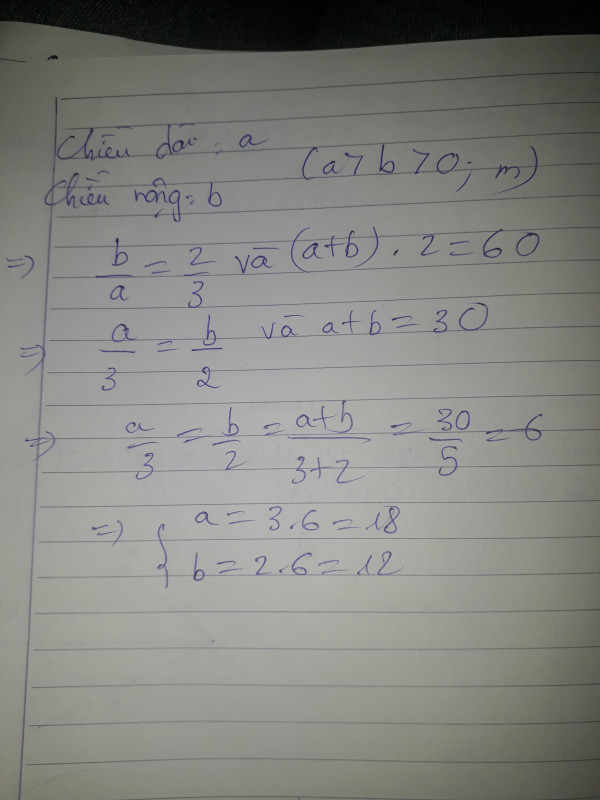 Chiều dài: a
(a > b > 0; m)
Chiều rộng: b
=> b/a = 2/3 và (a+b) . 2 = 60
=> a/3 = b/2 và a+b = 30
=> a/3 = b/2 = a+b/3+2 = 30/5 = 6
=> { a = 3.6 = 18
b = 2.6 = 12